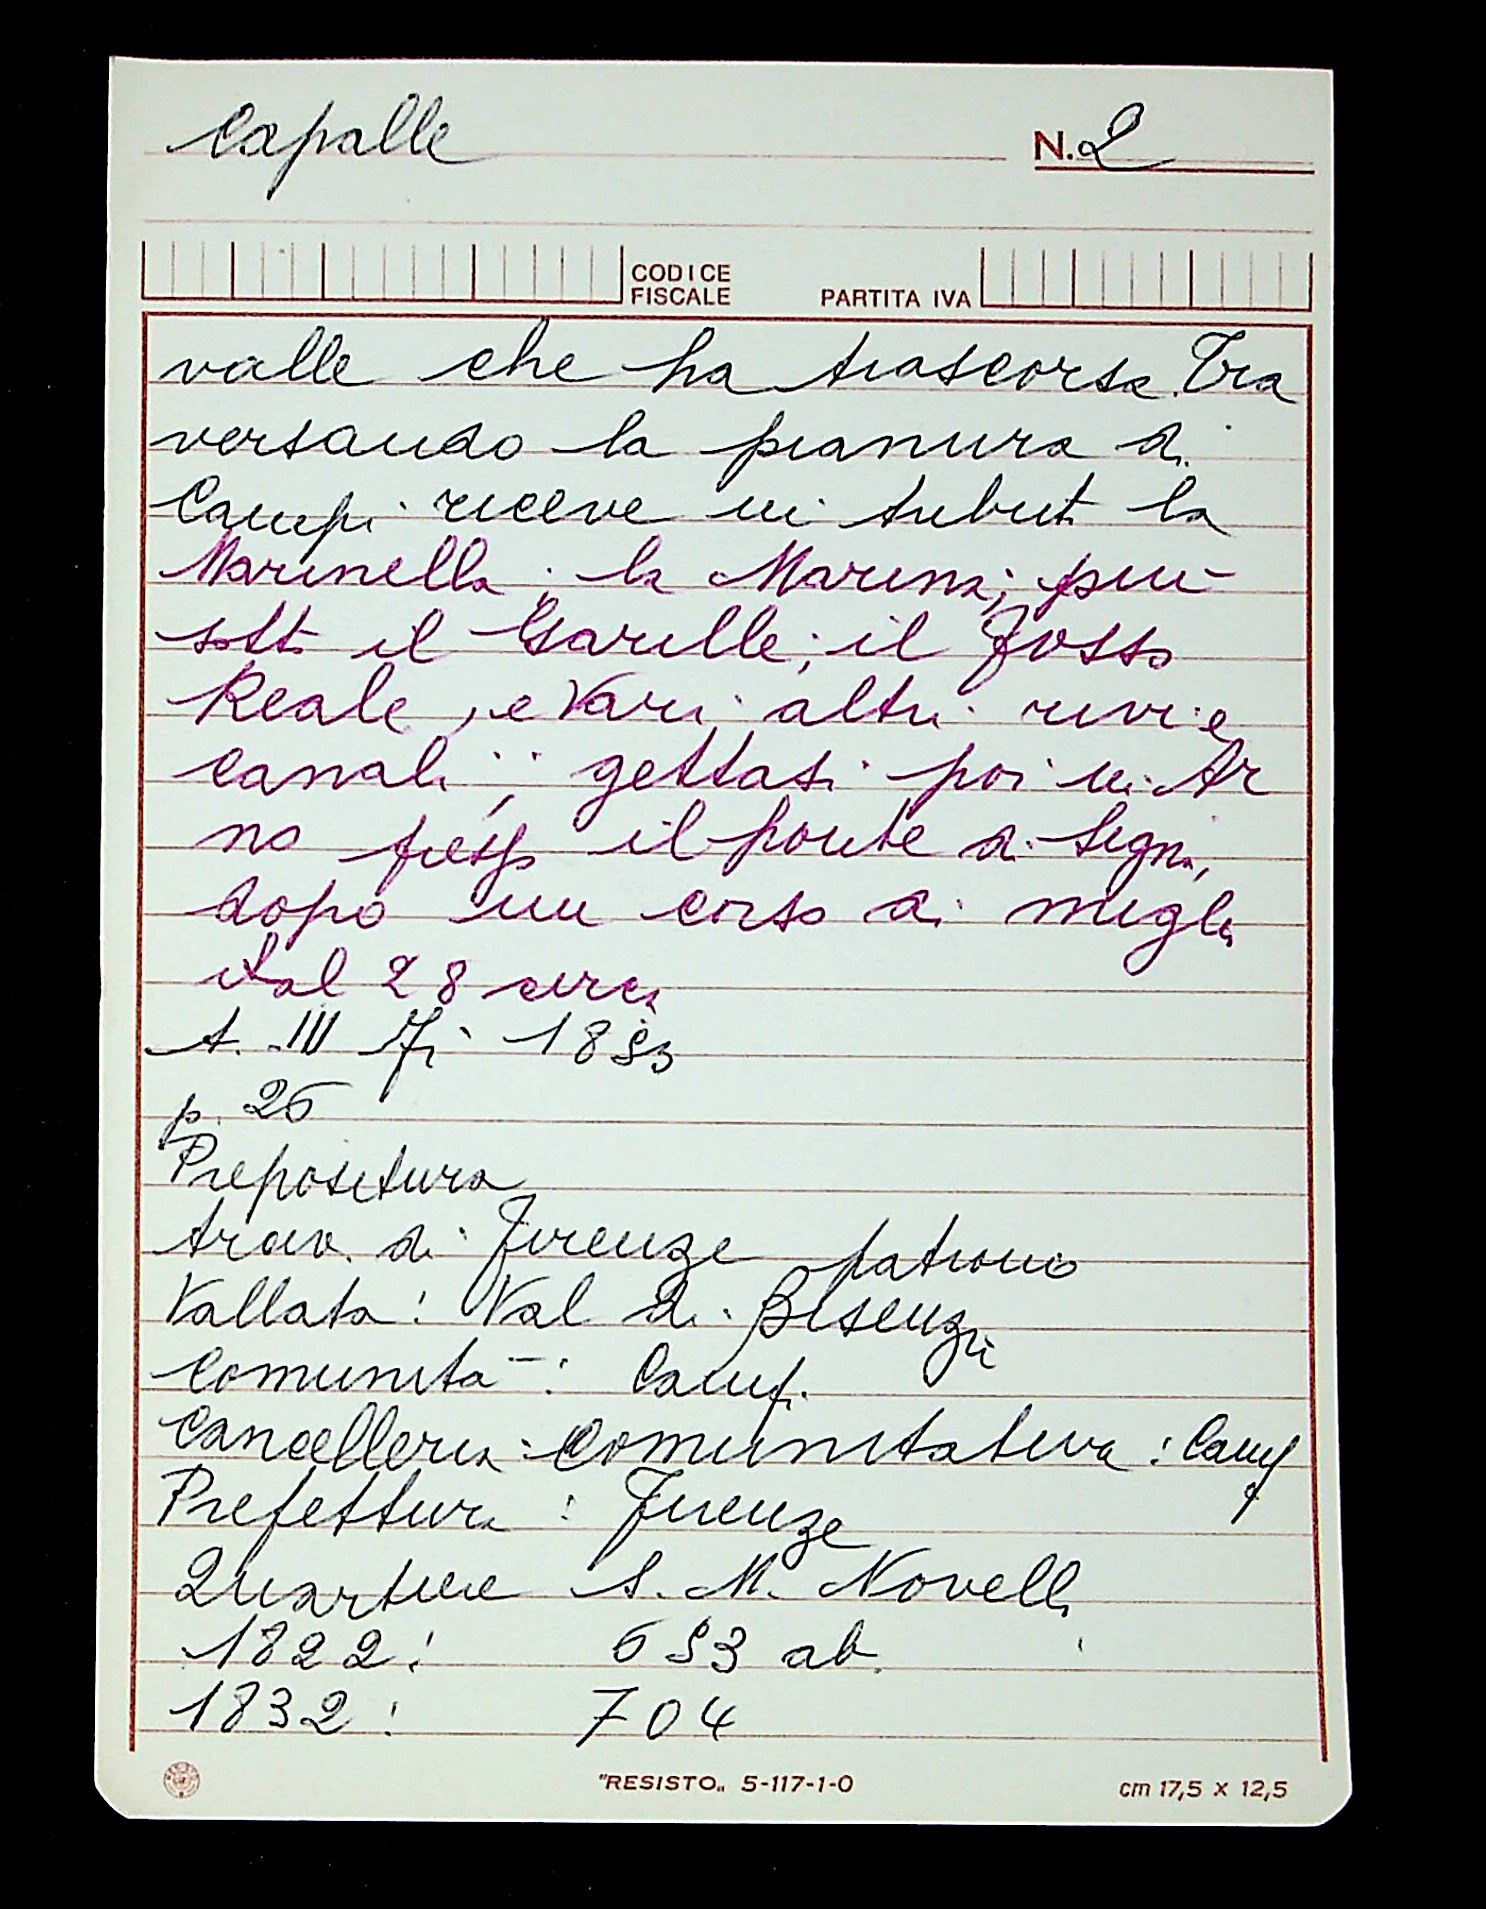 Capalle N. 2
CODICE
FISCALE PARTITA IVA
valle che ha trascorsa. Tra
versando la pianura di
Campi riceve in tributo la
Marinella; la Marina; più
sotto il Garille; il Fosso
Reale, e vari altri rivi e
canali; gettasi poi in Ar
no presso il ponte a Signa,
dopo un corso di miglia
ital 28 circa
t. III Fi 1853
p. 26
Prepositura
di Firenze patrono
Vallata: Val di Bisenzio
Comunità: Campi
Cancelleria Comunitativa: Camp
Prefettura: Firenze
Quartiere S. M. Novella
1822: 693 ab.
1832: 704
"RESISTO„ 5-117-1-0 cm 17,5 x 12,5